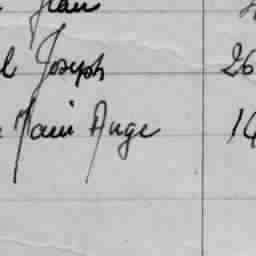 Jean
l Joseph 26
Marie Ange 14